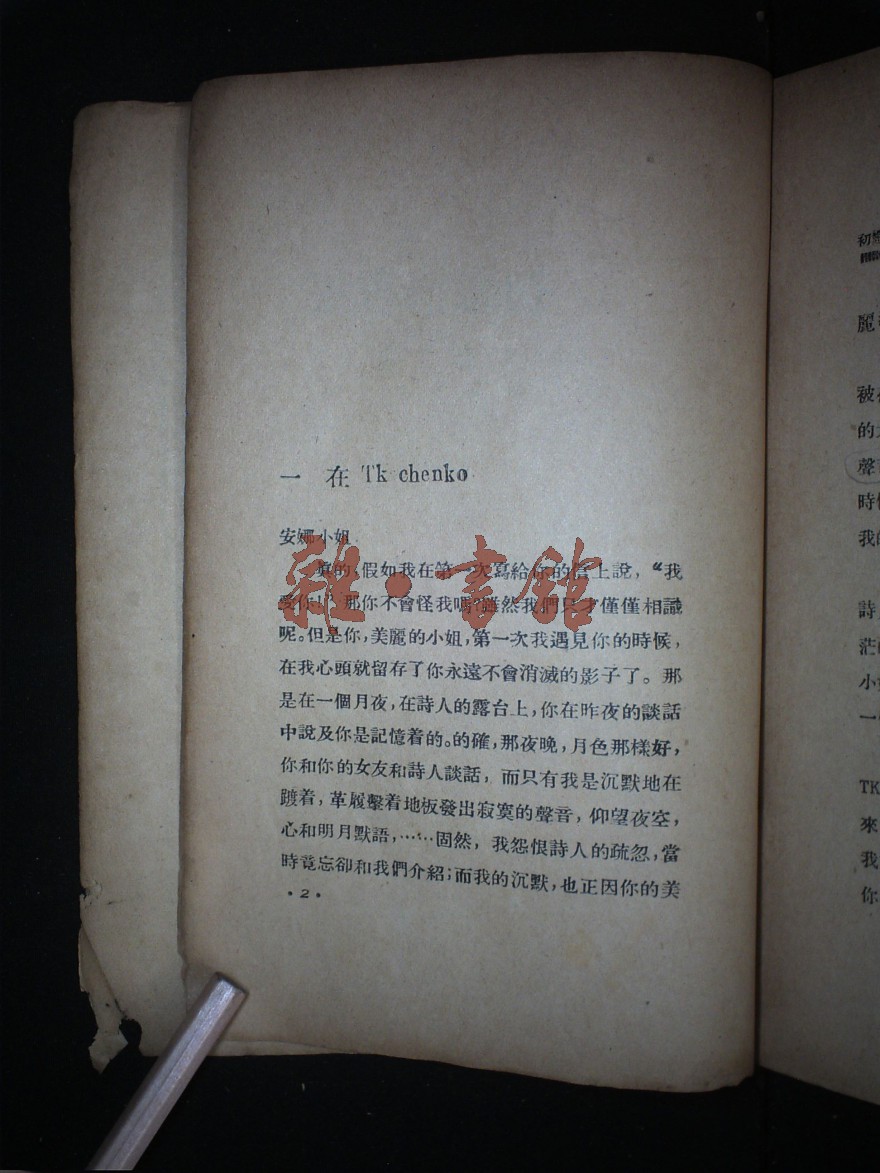 一 在 Tk chenko
安娜小姐
真的,假如我在第一次寫給你的信上說,“我
愛你!”那你不會怪我嗎?雖然我們只才僅僅相識
呢。但是你,美麗的小姐,第一次我遇見你的時候,
在我心頭就留存了你永遠不會消滅的影子了。那
是在一個月夜,在詩人的露台上,你在昨夜的談話
中說及你是記憶着的。的確,那夜晚,月色那樣好,
你和你的女友和詩人談話,而只有我是沉默地在
踱着,革履擊着地板發出寂寞的聲音,仰望夜空,
心和明月默語,……固然,我怨恨詩人的疏忽,當
時竟忘却和我們介紹;而我的沉默,也正因你的美
·2·
雜·書館
初
麗
被
的
聲
時
我的
詩
茫
小
一
TK
來
我
你